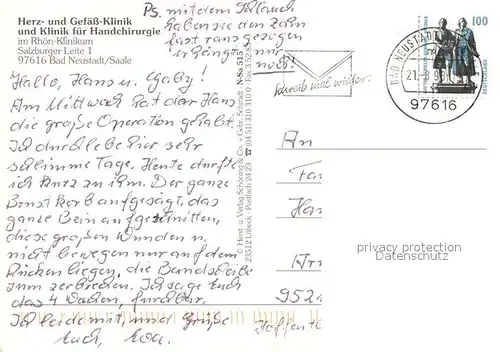 Herz- und Gefäß-Klinik
und Klinik für Handchirurgie
im Rhön-Klinikum
Salzburger Leite 1
97616 Bad Neustadt/Saale
Ps. mit dem Schlauch
haben sie den Zahn
fast rausgezogen
er hängt nur
noch!
Hallo, Hans u. Gaby!
Am Mittwoch hat der Hans
die große Operation gehabt.
Ich durchlebe hier sehr
schlimme Tage. Heute durfte
ich kurz zu ihm. Der ganze
Brustkorb aufgesägt, das
ganze Bein aufgeschnitten,
diese großen Wunden u.
nicht bewegen nur auf dem
Rücken liegen, die Bandscheibe
zum zerbrechen. Ich sage euch
das 4 Wochen, furchtbar.
Ich leide mit, Grüße
Euch,
© Horst u. Verlag Schöning & Co. · Gebr. Schmidt
23512 Lübeck · Postfach 24 23
N-Sa 515
Schreib mal wieder!
BAD NEUSTADT
97616
100
DEUTSCHLAND
An
Fa
Ha
952
Hoffentl
privacy protection
Datenschutz